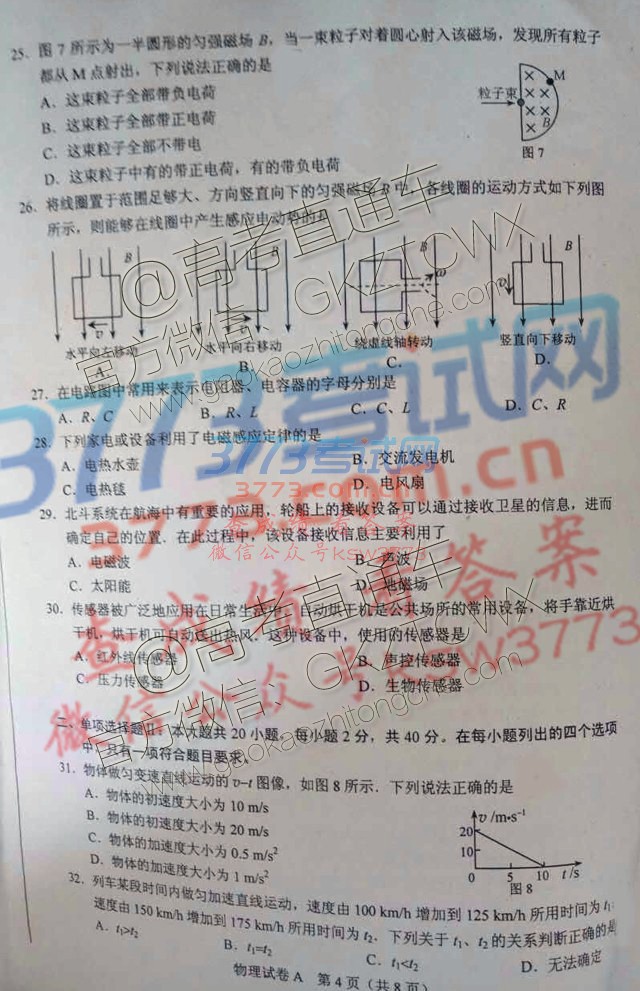 25. 图 7 所示为一半圆形的匀强磁场 B，当一束粒子对着圆心射入该磁场，发现所有粒子
都从 M 点射出，下列说法正确的是
A．这束粒子全部带负电荷
B．这束粒子全部带正电荷
C．这束粒子全部不带电
D．这束粒子中有的带正电荷，有的带负电荷
粒子束
M
B
图 7
26. 将线圈置于范围足够大、方向竖直向下的匀强磁场 B 中，各线圈的运动方式如下列图
所示，则能够在线圈中产生感应电动势的是
B
B
B
B
v
v
ω
v
水平向左移动
水平向右移动
绕虚线轴转动
竖直向下移动
A.
B.
C.
D.
27. 在电路图中常用来表示电阻器、电容器的字母分别是
A．R、C
B．R、L
C．C、L
D．C、R
28. 下列家电或设备利用了电磁感应定律的是
A．电热水壶
B．交流发电机
C．电热毯
D．电风扇
29. 北斗系统在航海中有重要的应用，轮船上的接收设备可以通过接收卫星的信息，进而
确定自己的位置．在此过程中，该设备接收信息主要利用了
A．电磁波
B．声波
C．太阳能
D．地磁场
30. 传感器被广泛地应用在日常生活中，自动烘干机是公共场所的常用设备，将手靠近烘
干机，烘干机可自动送出热风．这种设备中，使用的传感器是
A．红外线传感器
B．声控传感器
C．压力传感器
D．生物传感器
二、单项选择题II：本大题共 20 小题，每小题 2 分，共 40 分。在每小题列出的四个选项
中，只有一项符合题目要求。
31. 物体做匀变速直线运动的 v–t 图像，如图 8 所示．下列说法正确的是
A．物体的初速度大小为 10 m/s
B．物体的初速度大小为 20 m/s
C．物体的加速度大小为 0.5 m/s²
D．物体的加速度大小为 1 m/s²
v /m•s⁻¹
20
10
0 5 10 t /s
图 8
32. 列车某段时间内做匀加速直线运动，速度由 100 km/h 增加到 125 km/h 所用时间为 t₁
速度由 150 km/h 增加到 175 km/h 所用时间为 t₂．下列关于 t₁、t₂ 的关系判断正确的是
A．t₁>t₂
B．t₁=t₂
C．t₁<t₂
D．无法确定
物理试卷 A 第 4 页（共 8 页）
@高考直通车
官方微信：GKZTCWX
www.gaokaozhitongche.com
@高考直通车
官方微信：GKZTCWX
www.gaokaozhitongche.com
3773考试网
3773.com.cn
查成绩 查答案
微信公众号ksw3773
3773考试网
3773.com.cn
查成绩查答案
微信公众号ksw3773